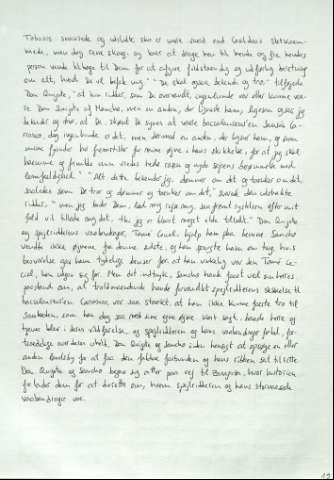 Tobosos snavsede og udslidte sko er værd
mende, men dog rene skæg, og lover at drage hen til hende og fra hendes
person vende tilbage til Dem for at afgive fuldstændig og udførlig beretning
om alt, hvad De vil befale mig." "De skal også bekende og tro," tilføjede
Don Quijote, "at han ridder, som De overvandt, ingenlunde var eller kunne væ-
re Don Quijote af Mancha, men en anden, der lignede ham, ligesom også jeg
bekender og tror, at De, skønt De synes at være baccalaureus'en Sansón Ca-
rrasco, dog ingenlunde er det, men derimod en anden, der ligner ham, og som
mine fjender har fremstillet for mine øjne i hans skikkelse, for at jeg skal
bremse og formilde min vredes hede og nyde sejrens berømmelse med
lemfældighed." "Alt dette bekender jeg, dømmer om det og tænker om det,
således som De tror og dømmer og tænker om det," svarede den udstrakte
ridder, "men jeg beder Dem, lad mig rejse mig, såfremt rystelsen efter mit
fald vil tillade mig det, thi jeg er blevet meget ilde tilredt." Don Quijote
og spejlridderens våbendrager, Tomé Cecial, hjalp ham på benene. Sancho
vendte ikke øjnene fra denne sidste, og han spurgte ham om ting, hvis
besvarelse gav ham tydelige beviser for, at han virkelig var den Tomé Ce-
cial, han udgav sig for. Men det indtryk, Sancho havde fået ved sin herres
påstand om, at troldmændene havde forvandlet spejlridderens skikkelse til
baccalaureus'en Carrasco, var så stærkt, at han ikke kunne fæste tro til
sandheden, som han dog så med sine egne øjne. Kort sagt: både herre og
tjener blev i deres vildfarelse, og spejlridderen og hans våbendrager forlod, for-
trædelige over deres uheld, Don Quijote og Sancho i den hensigt at opsøge en eller
anden landsby for at få den faldne forbunden og hans ribben sat til rette.
Don Quijote og Sancho begav sig atter på vej til Zaragoza, hvor historien
forlader dem for at berette om, hvem spejlridderen og hans stornæsede
våbendrager var.
12